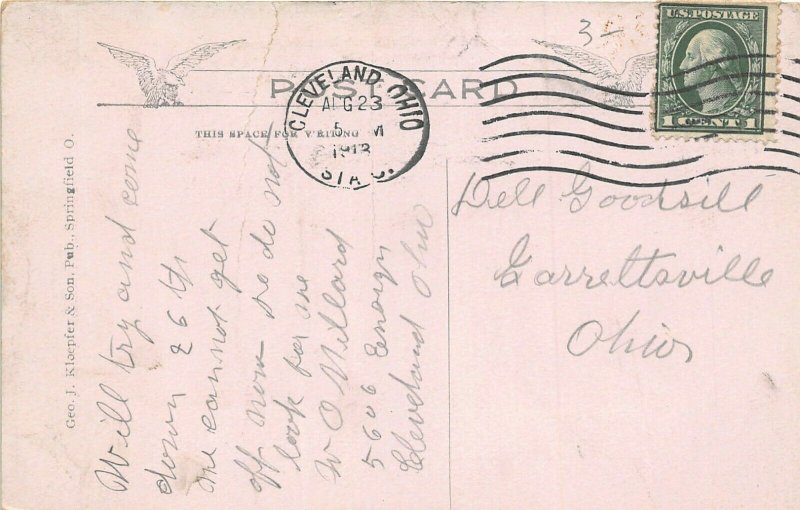 3-
U.S. POSTAGE
1 CENT 1
POST CARD
CLEVELAND, OHIO
AUG 23
5 M
1913
STA C.
THIS SPACE FOR WRITING
Geo. J. Kloepfer & Son, Pub., Springfield O.
Will try and come
down 26th
me cannot get
off now so do not
look for me
W O Millard
5606
Cleveland Ohio
Dell Goodsill
Garrettsville
Ohio